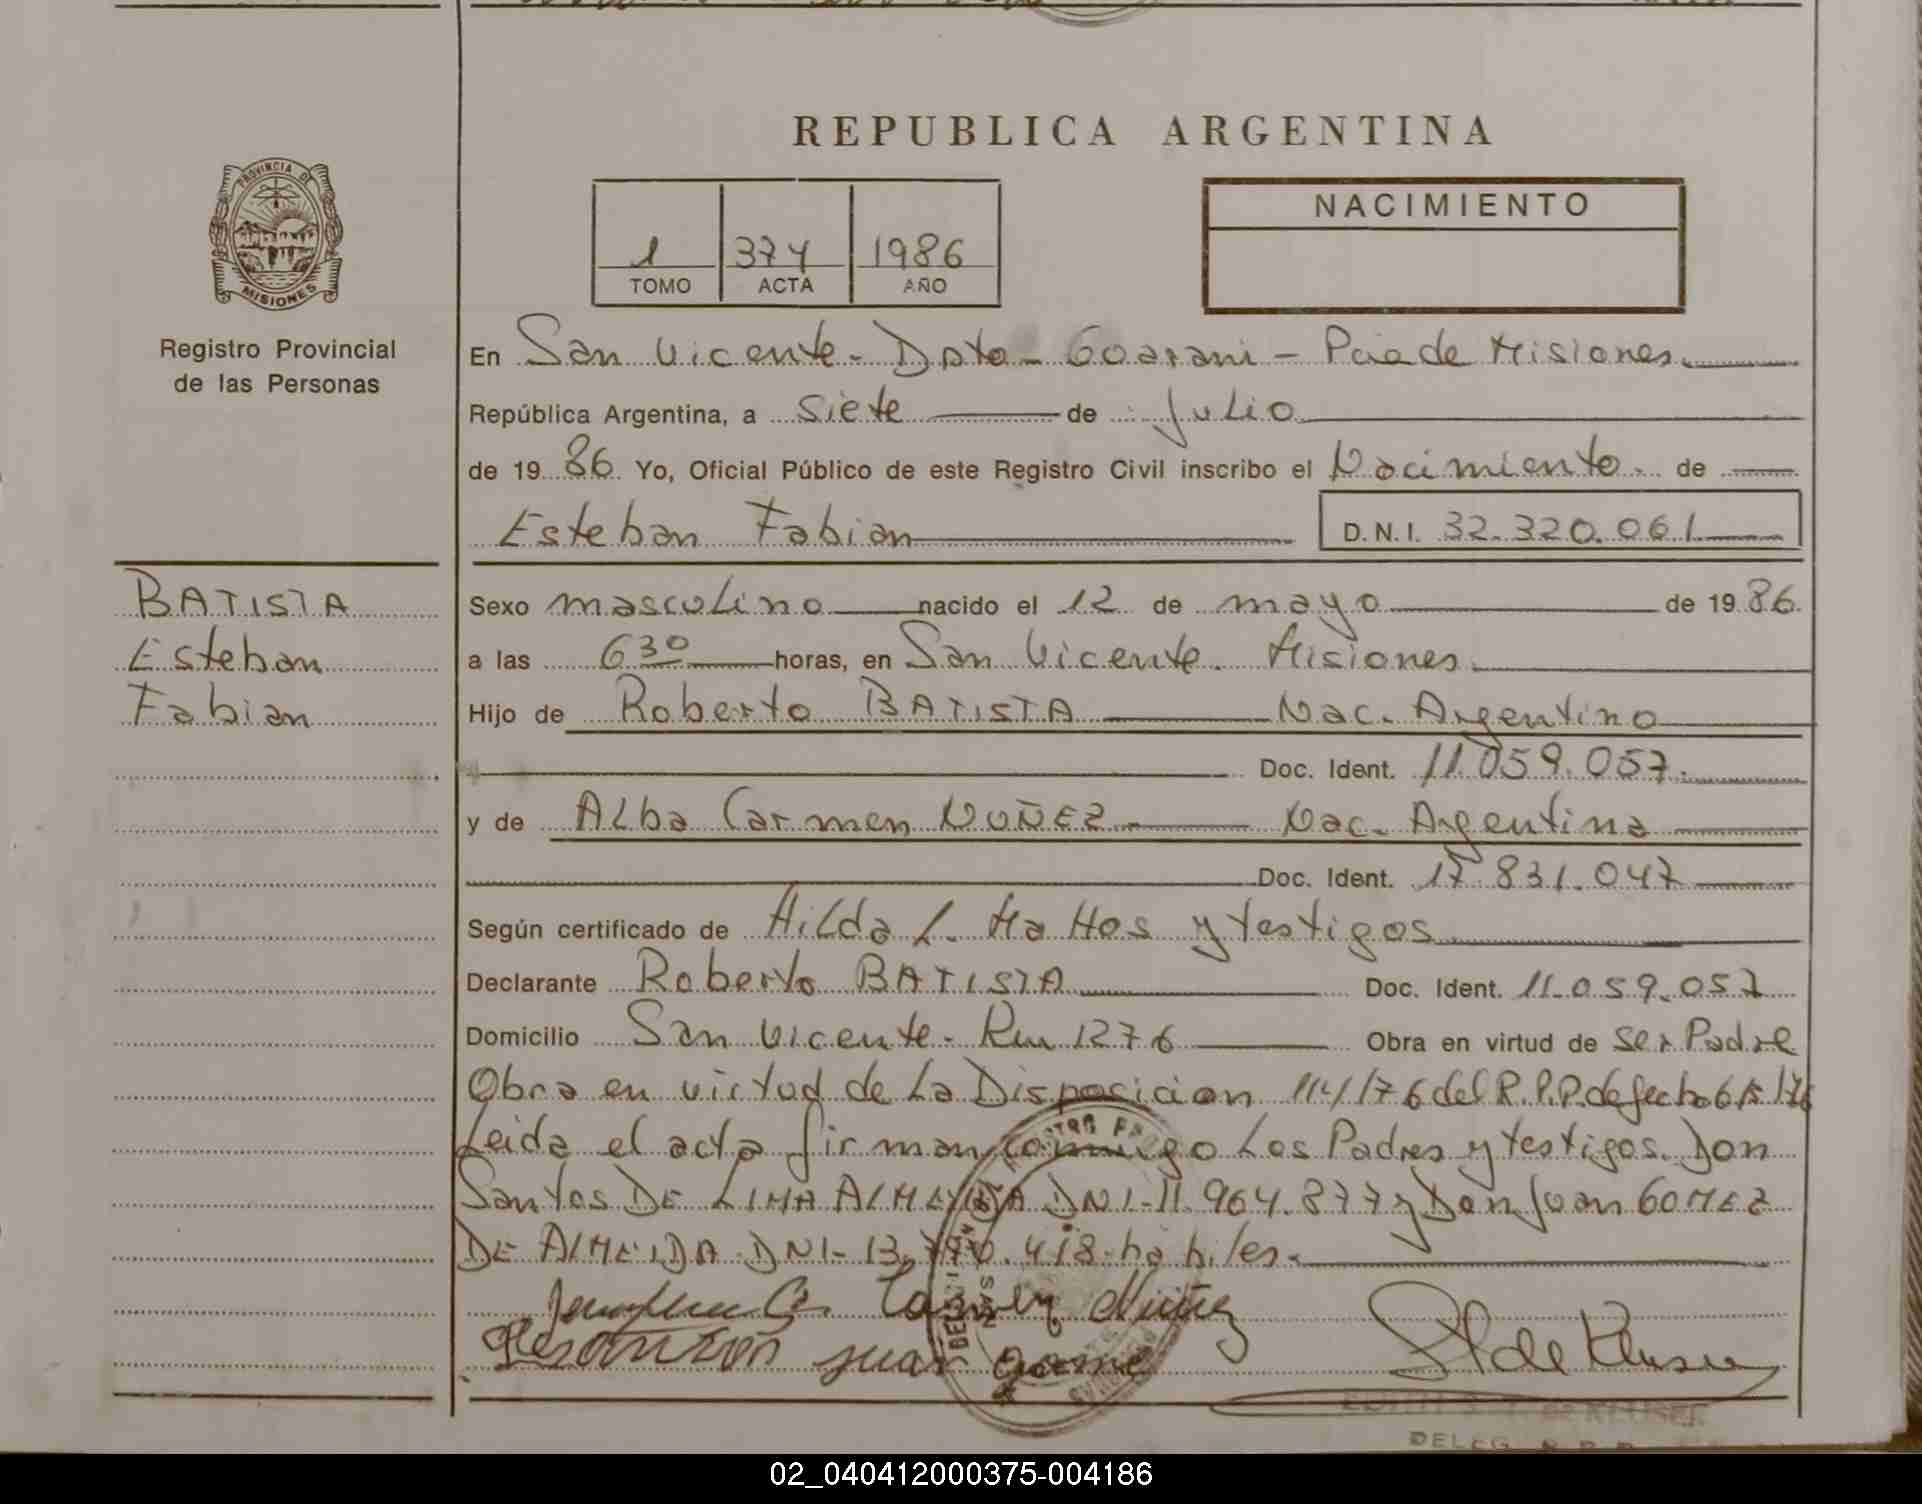 REPUBLICA ARGENTINA
PROVINCIA DE
MISIONES
Registro Provincial
de las Personas
1 374 1986
TOMO ACTA AÑO
NACIMIENTO
En San Vicente - Dpto - Guarani - Pcia de Misiones
República Argentina, a siete de Julio
de 19 86 Yo, Oficial Público de este Registro Civil inscribo el Nacimiento de
Esteban Fabian D.N.I. 32.320.061
BATISTA
Esteban
Fabian
Sexo masculino nacido el 12 de mayo de 19 86
a las 6 30 horas, en San Vicente. Misiones
Hijo de Roberto BATISTA Nac. Argentino
Doc. Ident. 11.059.057.
y de Alba Carmen NUÑEZ Nac. Argentina
Doc. Ident. 17.831.047
Según certificado de Hilda L. Mattos y testigos
Declarante Roberto BATISTA Doc. Ident. 11.059.057
Domicilio San Vicente - Km 1276 Obra en virtud de ser Padre
Obra en virtud de La Disposicion 114/76 del R.P.P. de fecha
Leida el acta firman conmigo Los Padres y testigos. Don
Santos DE LIMA ALMEIDA DNI-11.964.877 y Don Juan GOMEZ
DE ALMEIDA DNI-13. .418- habiles.
Carmen Nuñez
juan gome
de Kluser
DE KLUSER
DELEG. R.P.P.
02_040412000375-004186